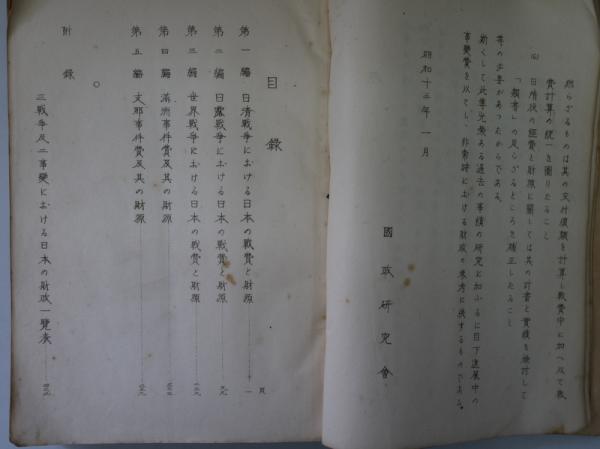 然らざるものは其の交付債額を計算し戦費中に加へ以て戦
費計算の統一を圖りたること
日清役の経費と財源に關しては其の計畫と實績を検討して
「類書」の足らざるところを補正したること
等の必要があったからである。
斯くして此等光輝ある過去の事績の研究に加ふるに目下進展中の
事變費を以てし、非常時に於ける財政の参考に供するものである。
昭和十三年一月
國政研究會
目録
頁
第一編 日清戦争に於ける日本の戦費と財源 一
第二編 日露戦争に於ける日本の戦費と財源
第三編 世界戦争に於ける日本の戦費と財源
第四編 満洲事件費及其の財源
第五編 支那事件費及其の財源
附録
三戦争及二事變に於ける日本の財政一覧表